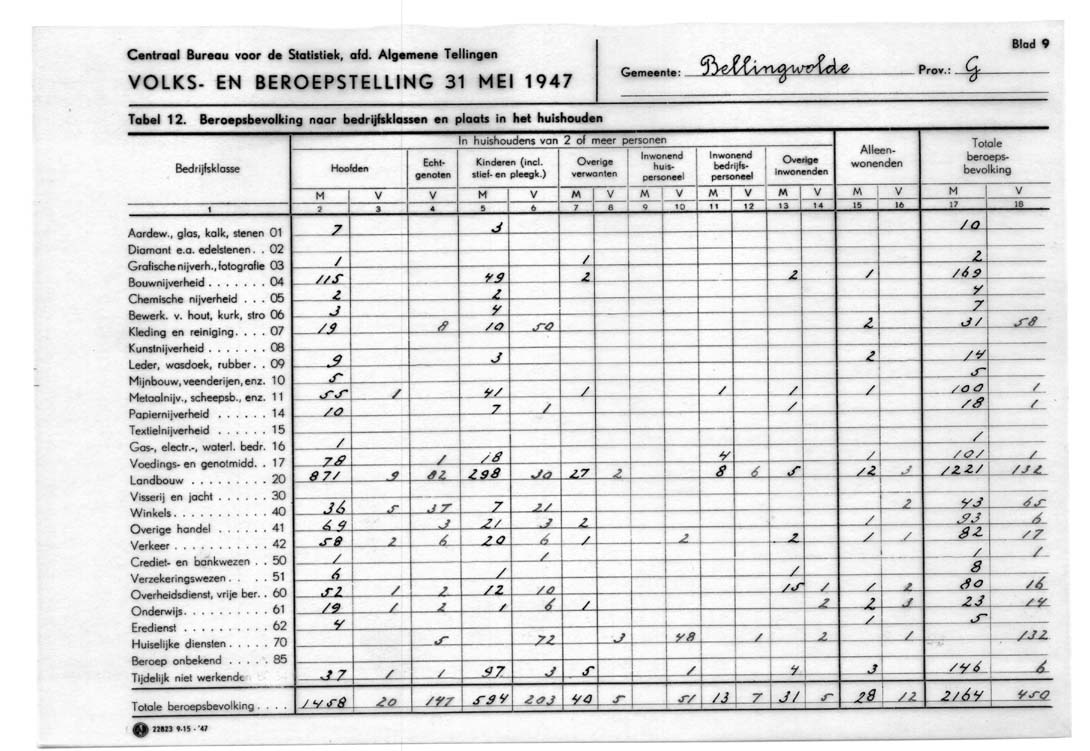 Centraal Bureau voor de Statistiek, afd. Algemene Tellingen
Blad 9
VOLKS- EN BEROEPSTELLING 31 MEI 1947
Gemeente: Bellingwolde Prov.: G
Tabel 12. Beroepsbevolking naar bedrijfsklassen en plaats in het huishouden
Bedrijfsklasse
In huishoudens van 2 of meer personen
Hoofden
Echt-
genoten
Kinderen (incl.
stief- en pleegk.)
Overige
verwanten
Inwonend
huis-
personeel
Inwonend
bedrijfs-
personeel
Overige
inwonenden
Alleen-
wonenden
Totale
beroeps-
bevolking
M V V M V M V M V M V M V M V M V
1 2 3 4 5 6 7 8 9 10 11 12 13 14 15 16 17 18
Aardew., glas, kalk, stenen 01 7 3 10
Diamant e.a. edelstenen. . 02
Grafische nijverh., fotografie 03 1 1 2
Bouwnijverheid . . . . . . . 04 115 49 2 2 1 169
Chemische nijverheid . . . 05 2 2 4
Bewerk. v. hout, kurk, stro 06 3 4 7
Kleding en reiniging. . . . 07 19 8 10 50 2 31 58
Kunstnijverheid . . . . . . . 08
Leder, wasdoek, rubber. . 09 9 3 2 14
Mijnbouw, veenderijen, enz. 10 5 5
Metaalnijv., scheepsb., enz. 11 55 1 41 1 1 1 1 100 1
Papiernijverheid . . . . . . 14 10 7 1 1 18 1
Textielnijverheid . . . . . . 15
Gas-, electr.-, waterl. bedr. 16 1 1
Voedings- en genotmidd. . 17 78 1 18 4 1 101 1
Landbouw . . . . . . . . . 20 871 9 82 298 30 27 2 8 6 5 12 3 1221 132
Visserij en jacht . . . . . . 30
Winkels . . . . . . . . . . . 40 36 5 37 7 21 2 43 65
Overige handel . . . . . . . 41 69 3 21 3 2 1 93 6
Verkeer . . . . . . . . . . . 42 58 2 6 20 6 1 2 2 1 1 82 17
Crediet- en bankwezen . . 50 1 1 1 1
Verzekeringswezen. . . . . 51 6 1 1 8
Overheidsdienst, vrije ber. . 60 52 1 2 12 10 15 1 1 2 80 16
Onderwijs. . . . . . . . . . 61 19 1 2 1 6 1 2 2 3 23 14
Eredienst . . . . . . . . . . 62 4 1 5
Huiselijke diensten . . . . . 70 5 72 3 48 1 2 1 132
Beroep onbekend . . . . . 85
Tijdelijk niet werkenden 37 1 1 97 3 5 1 4 3 146 6
Totale beroepsbevolking . . . . 1458 20 147 594 203 40 5 51 13 7 31 5 28 12 2164 450
22823 9-15 - '47